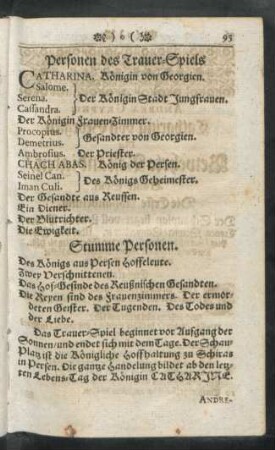 )6( 95
Personen des Trauer-Spiels
CATHARINA. Königin von Georgien.
Salome.
Serena. Der Königin Stadt Jungfrauen.
Cassandra.
Der Königin Frauen-Zimmer.
Procopius.
Demetrius. Gesandter von Georgien.
Ambrosius. Der Priester.
CHACH ABAS. König der Persen.
Seinel Can.
Iman Culi. Des Königs Geheimester.
Der Gesandte aus Reussen.
Ein Diener.
Der Blutrichter.
Die Ewigkeit.
Stumme Personen.
Des Königs aus Persen Hoffeleute.
Zwey Verschnittenen.
Das Hof-Gesinde des Reußnischen Gesandten.
Die Reyen sind des Frauenzimmers. Der ermor-
deten Geister. Der Tugenden. Des Todes und
der Liebe.
Das Trauer-Spiel beginnet vor Aufgang der
Sonnen/ und endet sich mit dem Tage. Der Schau-
Platz ist die Königliche Hoffhaltung zu Schiras
in Persen. Die gantze Handelung bildet ab den letz-
ten Lebens-Tag der Königin CATHARINE.
ANDRE-